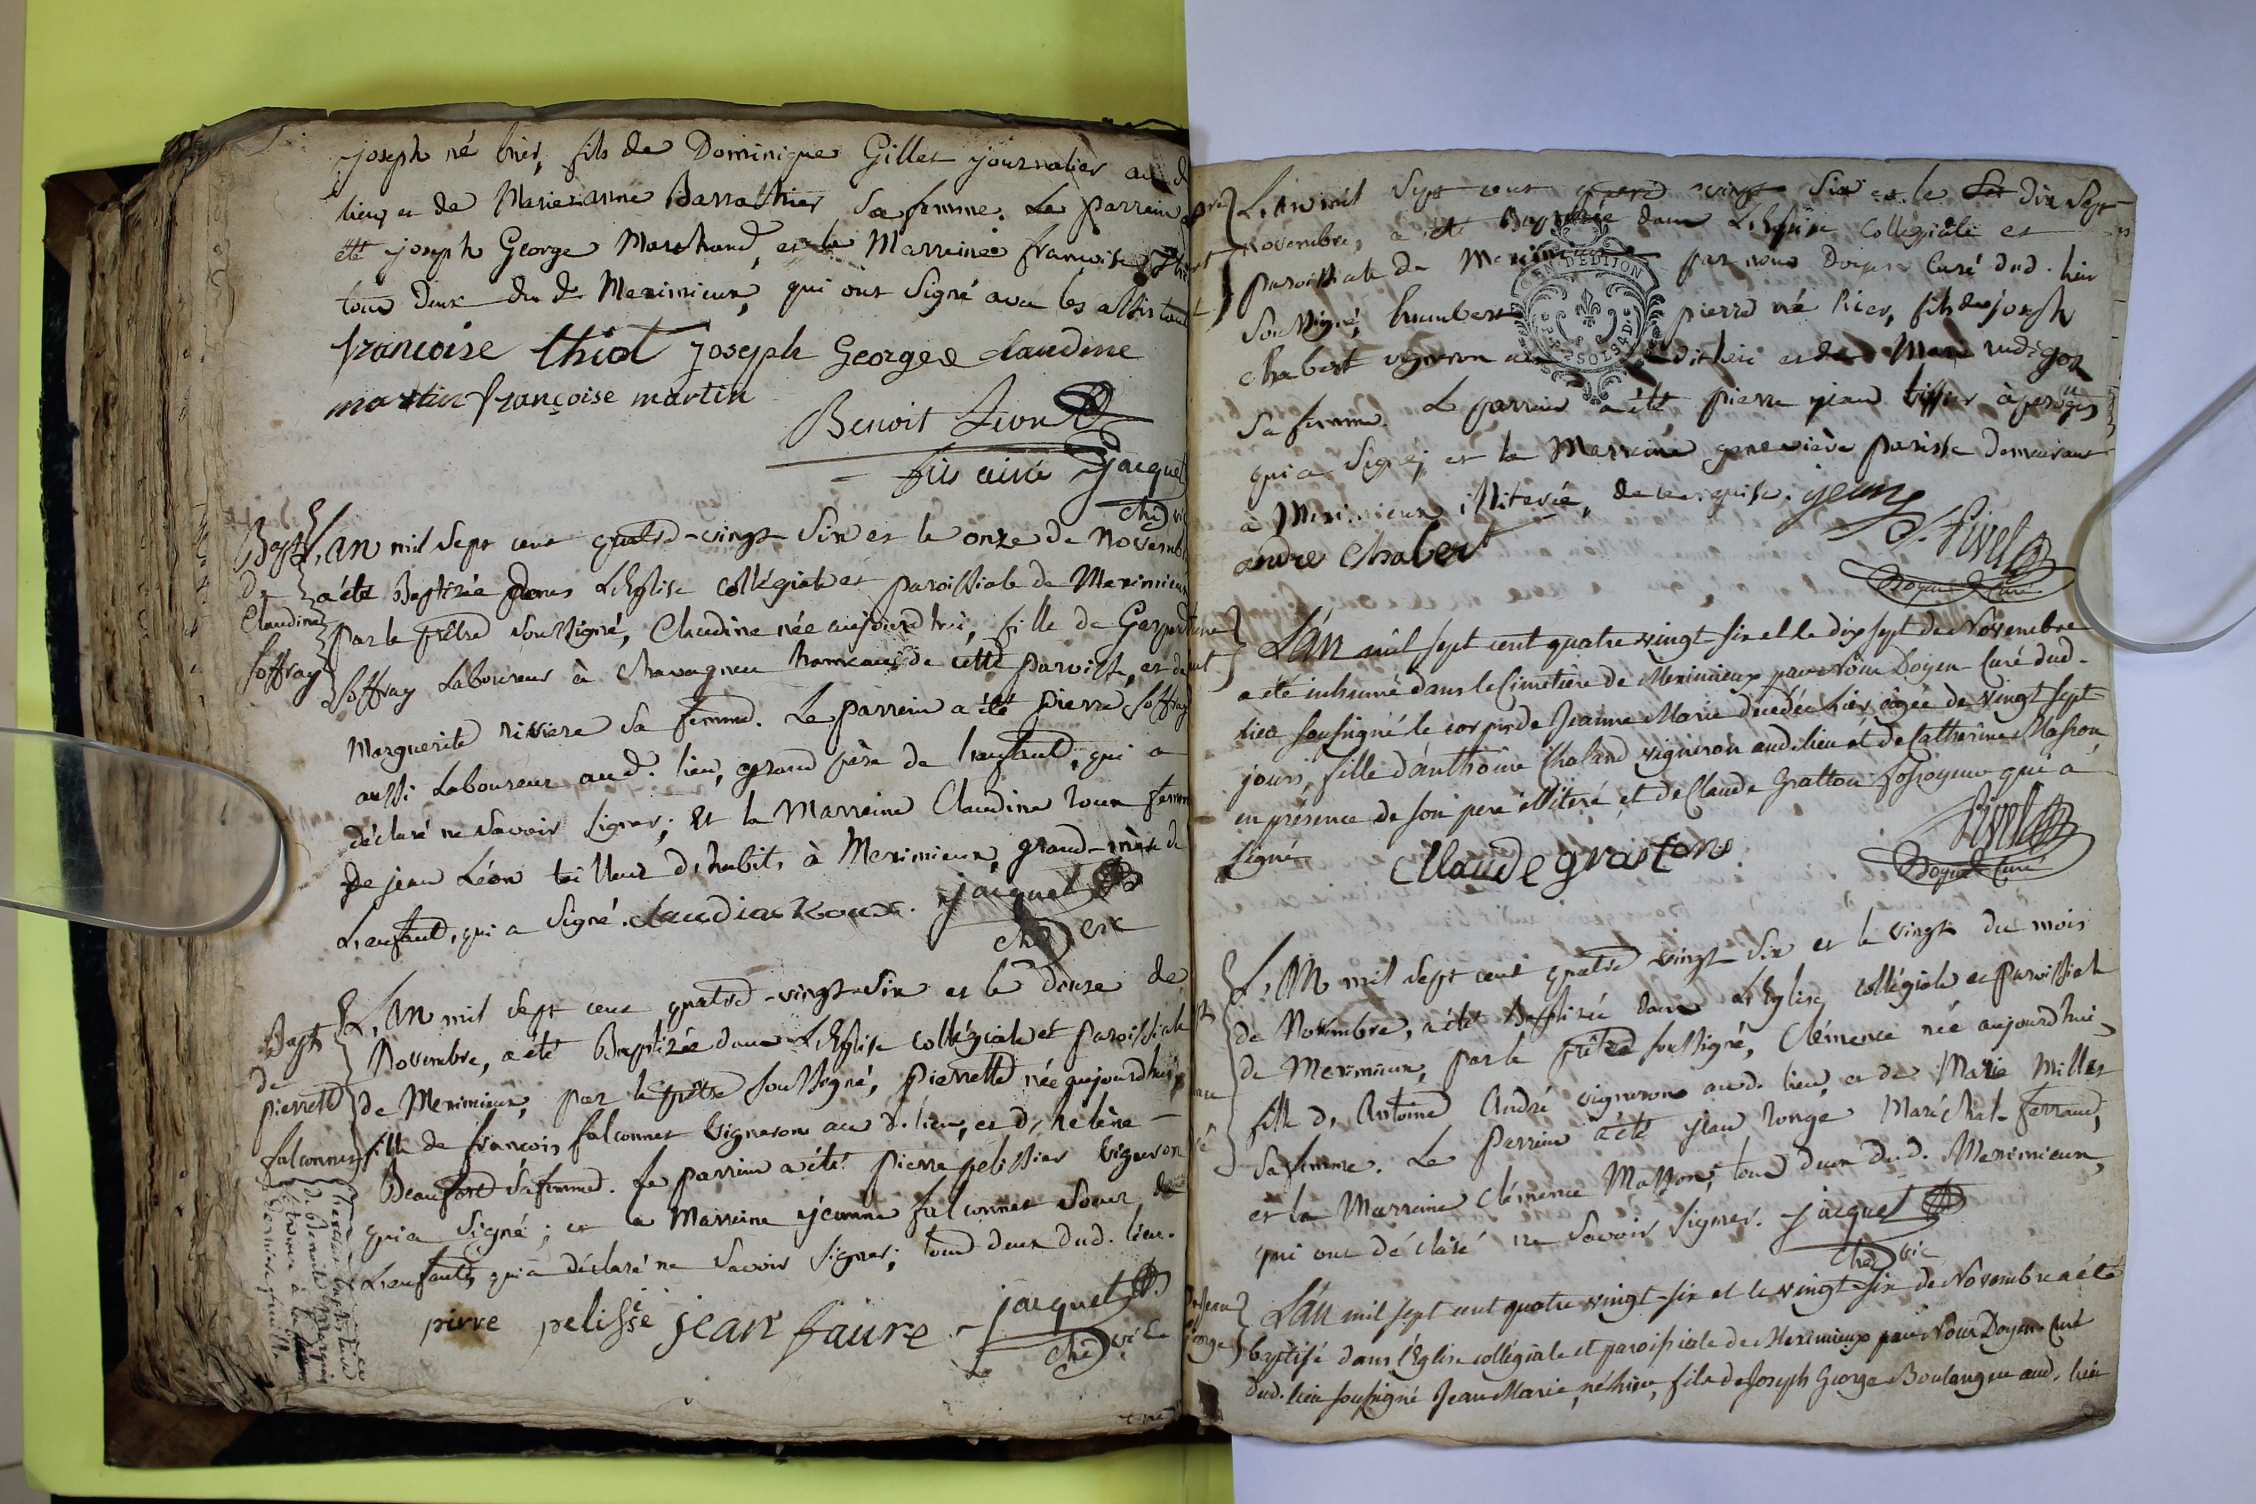 joseph né hier, fils de Dominique Gillet journalier au d
lieu, et de Marie-anne Barrathier Sa femme. Le parrein a
été joseph George Marchand, et la Marreine françoise
tous deux du d. Meximieux, qui ont Signé avec les assistants
françoise thiot joseph George claudine
martin françoise martin
Benoit
fils ainé jacquet
che vic
Bapt.
de
Claudine
Soffray
L'AN mil sept cent quatre-vingt Six et le onze de Novemb
a été Baptisée dans L'Eglise collégiale et paroissiale de Meximieux
par le prêtre soussigné, Claudine née aujourdhui, fille de Gaspard
Soffray Laboureur à chavagneu hameau de cette paroisse, et de
Marguerite riviere Sa femme. Le parrein a été pierre Soffray
aussi Laboureur aud. lieu, grand père de l'enfant, qui a
déclaré ne Savoir Signer; Et la Marreine Claudine roux femme
de jean Léon tailleur d'habits à Meximieux, grand-mère de
L'enfant, qui a Signé. claudia Roux. jacquet
che vic
Bapt
de
pierrette
falconnet
L'AN mil Sept cent quatre-vingt-Six et le douze de
Novembre, a été Baptisée dans L'Eglise collégiale et paroissiale
de Meximieux, par le prêtre Soussigné, pierrette née aujourdhui,
fille de françois falconnet Vigneron au d. lieu, et d'helène
Beaufort Sa femme. Le parrein a été pierre pelissier Vigneron
qui a Signé; et la Marreine jeanne falconnet Soeur de
L'enfant, qui a déclaré ne Savoir Signer; tous deux dud. lieu.
pirre pelissie jean faure jacquet
che vic
dernière feuille
L'AN mil Sept cent quatre vingt Six et le dix Sept
Novembre, a été Baptisé dans L'Eglise Collégiale et
paroissiale de Meximieux par nous Doyen Curé dud. lieu
Soussigné, humbert pierre né hier, fils de joseph
chabert vigneron au dit lieu et de Marie
Sa femme. Le parrein a été pierre jean tissier à peroges
qui a Signé; et la Marreine genevieve parisse demeurant
à Meximieux illiterée, de ce requise. jean
andre Chabert J. Rivet
Doyen & Curé
L'an mil sept cent quatre vingt-six et le dix sept de Novembre
a été inhumé dans le Cimetière de Meximieux par Nous Doyen-Curé dud.
lieu soussigné le corps de Jeanne Marie décédée hier agée de vingt sept
jours, fille d'anthoine Chaland vigneron aud. lieu et de Catherine Masson,
en présence de son pere illiteré, et de Claude Gratton fossoyeur qui a
signé Claude graton Rivet
Doyen Curé
L'AN mil Sept cent quatre vingt Six et le vingt du mois
de Novembre, a été Baptisée dans L'Eglise collégiale et paroissiale
de Meximieux, par le prêtre soussigné, Clémence née aujourdhui,
fille d'Antoine André vigneron au d. lieu, et de Marie Millet
Sa femme. Le Parrein a été jean ronge Maréchal-ferrand,
et la Marreine Clémence Masson, tous deux dud. Meximieux,
qui ont déclaré ne Savoir Signer. jacquet
che vic
L'an mil sept cent quatre vingt-six et le vingt-six de Novembre a été
baptisé dans l'Eglise collégiale et paroissiale de Meximieux par Nous Doyen-Curé
dud. lieu soussigné Jean Marie, né hier, fils de Joseph George Boulanger aud. lieu